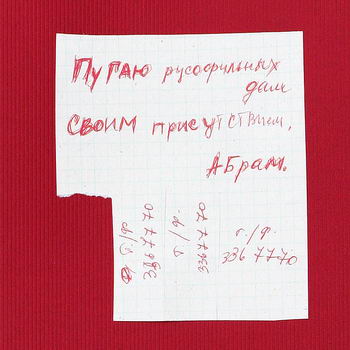 Пугаю русофильных
дам
своим присутствием.
Абрам.
т./ф.
336 77 70
т./ф.
336 77 70
т./ф.
336 77 70